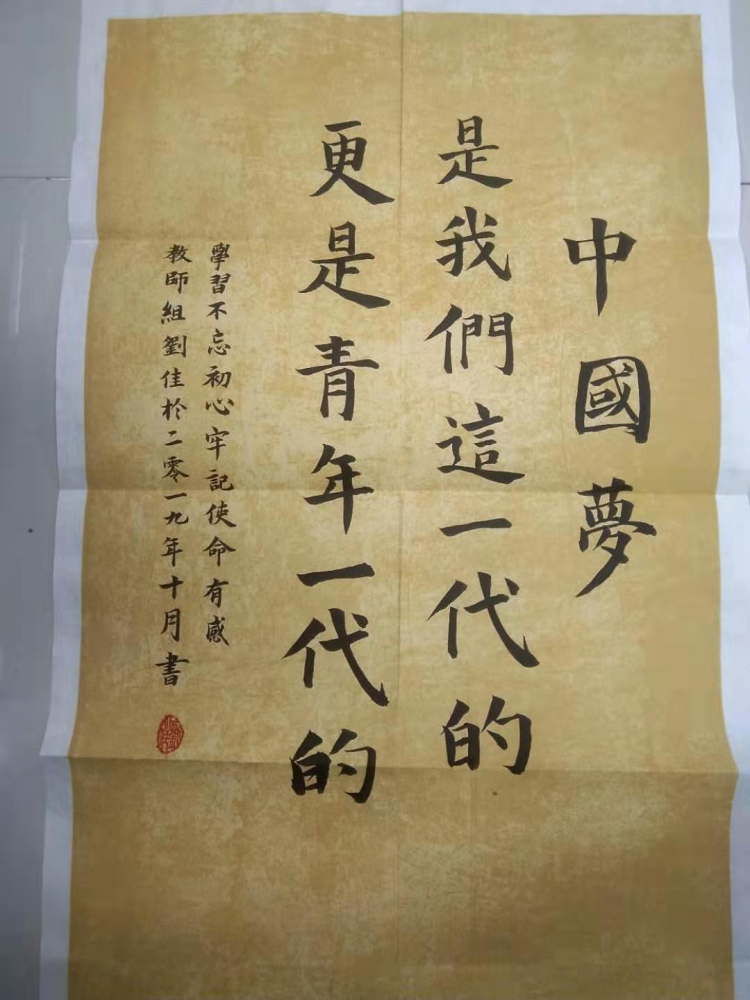 中國夢
是我們這一代的
更是青年一代的
學習不忘初心牢記使命有感
教師組劉佳於二零一九年十月書